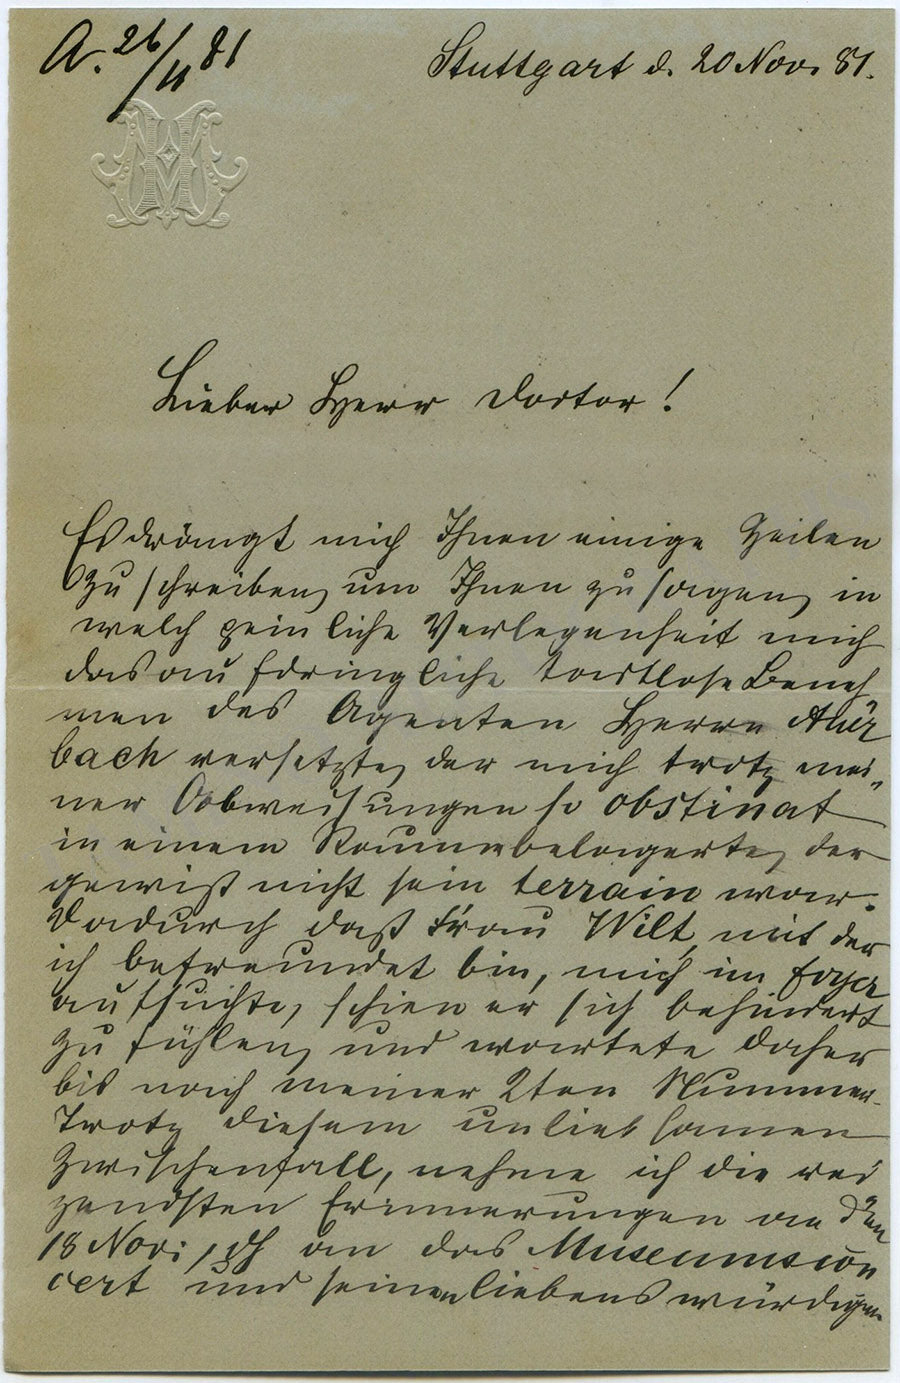 A. 26/11 81
Stuttgart d. 20 Nov. 81.
M
Lieber Herr Doctor!
Es drängt mich Ihnen einige Zeilen
zu schreiben, um Ihnen zu sagen, in
welch peinliche Verlegenheit mich
das aufdringliche tactlose Beneh-
men des Agenten Herrn Auer
bach versetzte, der mich trotz mei-
ner Abweisungen so obstinat
in einem Raum belagerte, der
gewiß nicht sein terrain war.
Dadurch daß Frau Wilt, mit der
ich befreundet bin, mich im foyer
aufsuchte, schien er sich behindert
zu fühlen, und wartete daher
bis nach meiner 2ten Nummer.
Trotz diesem unliebsamen
Zwischenfall, nehme ich die rei
zendsten Erinnerungen an den
18 Nov: an das Museumscon
cert und seinen liebenswürdigen